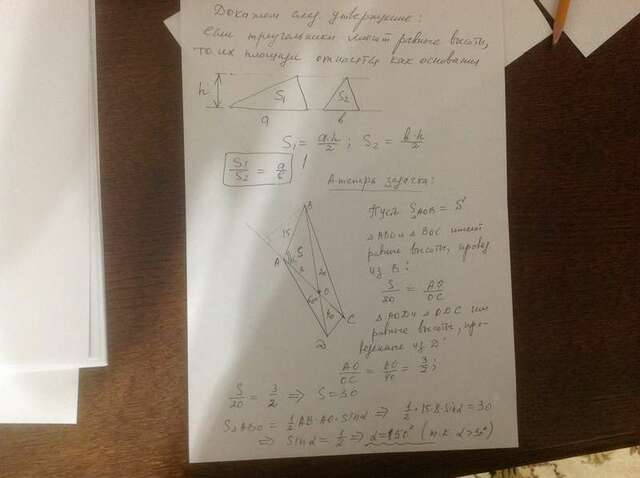 Докажем след. утверждение:
если треугольники имеют равные высоты,
то их площади относятся как основания
h
S₁
S₂
a
b
S₁ = a·h/2 ; S₂ = b·h/2
S₁/S₂ = a/b !
А теперь задачка:
B
15
A
S
8
20
O
60
40
C
D
Пусть S△AOB = S
△ABO и △BOC имеют
равные высоты, провед
из B:
S/20 = AO/OC
△AOD и △DOC им
равные высоты, про-
веденные из D
AO/OC = 60/40 = 3/2;
S/20 = 3/2 ⇒ S=30
S△ABO = 1/2 AB·AO·Sinα ⇒ 1/2·15·8·Sinα = 30
⇒ Sinα = 1/2 ⇒ α=150° (т.к α>90°)